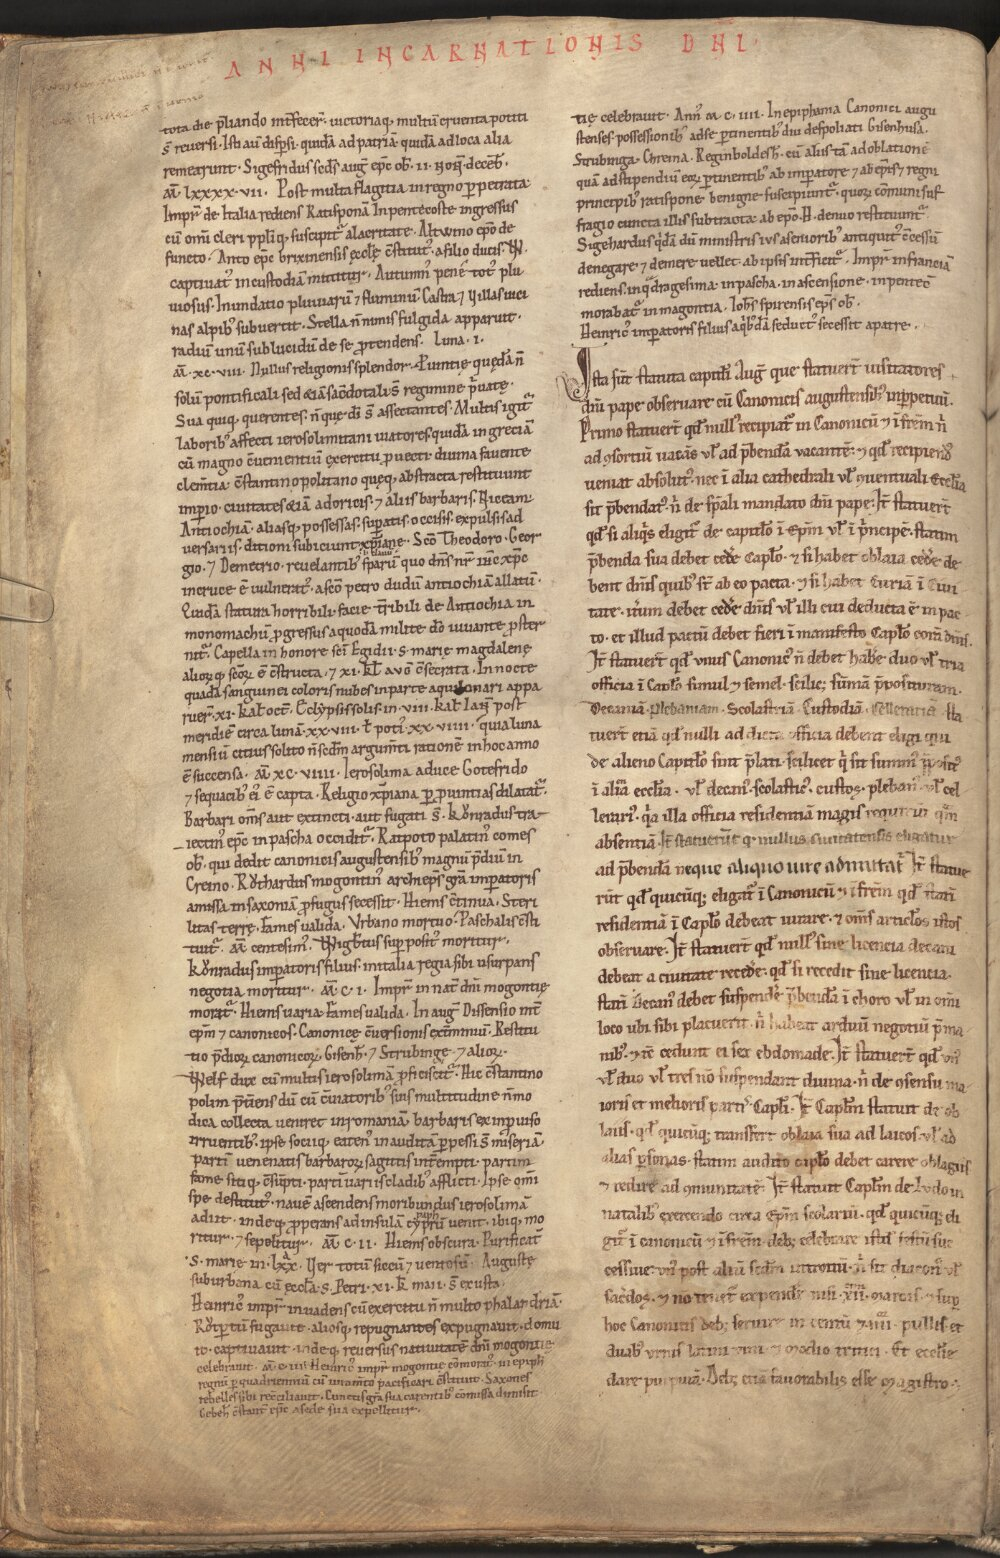 ANNI INCARNATIONIS DNI
tota die p̄liando int̄fecer̄. victoriaq; multū cruenta potiti
s̄ reuersi. Isti aut̄ disp̄si. quidā ad patriā. quidā ad loca alia
remearunt. Sigefridus seds̄ aug̅ epc̄ ob. II. noñ. deceb̄.
am̄. lxxxx.vii. Post multa flagitia in regno p̱petrata
Impr̄ de Italia rediens Ratisponā In pentecoste ingressus
cū om̄i cleri pplīq; suscipit᷑ alacritate. Altwino ep̄o de
functo. Anto epc̄ brixinensis ęcclę c̄stituit᷑. a filio ducis. W.
captiuat᷑ in custodiā mittitur. Autumn᷒ pene tot᷒ plu
uiosus. Inundatio pluuiarū ⁊ fluminū. Castra ⁊ uillas uici
nas alpib᷒ subuertit. Stella n̄ nimis fulgida apparuit.
radiū unū sublucidū de se p̱tendens. Luna. I.
am̄. xc.viii. Nullus religionis splendor.
solū pontificali sed &iā sac̄dotali s̄ regimine p̄uatę.
Sua quiq; querentes. n̄ que dī s̄ affectantes. Multis igit᷑
laborib᷒ affecti ierosolimitani uiatores. quidā in greciā
cū magno c̄uenientiū exercitu p̱uecti diuina fauente
clem̄tia c̄stantinopolitano quęq; abstracta restituunt
imp̱io. ciuitates &iā adoricis. ⁊ aliis barbaris. Niceam.
Antiochiā. aliasq; possessas. sup̱atis. occisis. expulsis ad
uersariis. ditioni subiciunt xp̄ianę. Sc̄o Theodoro. Geor
gio. ⁊ Demetrio. reuelantib᷒ quo dn̄s nr̄ ihc̄ xpc̄
in cruce ē vulnerat᷒. a sc̄o petro dudū antiochiā allatū.
Quidā statura horribili. facie t̄ribili de Antiochia in
monomachiū p̱gressus a quodā milite dō iuuante p̱ster
nit᷑. Capella in honore sc̄i Egidii. s. marię magdalenę
alioꝝq; sc̄oꝝ ē c̄structa. ⁊ xi. kl̄ avḡ c̄secrata. In nocte
quadā sanguinei coloris nubes in parte aquilonari appa
ruer̄. xi. kal̄. oct̄. Eclypsis solis in. viii. kal̄. ian̄ post
meridiē circa lunā. xx.viii. ł poti᷒. xx.viiii. quia luna
mensiū citius solito n̄ scd̄m argum̄ti rationē in hoc anno
ē succensa. am̄. xc.viiii. Ierosolima a duce Gotefrido
⁊ sequacib᷒ ei᷒ ē capta. Religio xp̄iana p̱ p̱uintias dilatat᷑.
Barbari om̄s aut extincti. aut fugati s̄. Kůnradus tra-
iectin᷒ epc̄ in pascha occidit᷑. Ratpoto palatin᷒ comes
ob. qui dedit canonicis augustensib᷒ magnū p̄diū in
Creino. Růthardus mogontin᷒ archiep̄s gr̄a imperatoris
amissa in saxoniā p̱fugus secessit. Hiems c̄tinua. Steri
litas terrę. Fames valida. Vrbano mortuo. Paschalis c̄sti
tuit᷑. am̄. centesim᷒. Wigb̄tus sup̱posit᷒ moritur.
Kůnradus imperatoris filius in italia regia sibi usurpans
negotia moritur. am̄. c. i. Impr̄ in nat̄ dn̄i mogontie
morat᷑. Hiems varia. Fames valida. In aug̅ Dissensio int̄
ep̄m ⁊ canonicos. Canonicę c̄uersionis ext̄miniū. Restitu
tio p̄dioꝝ canonicoꝝ. Gisenh̄. ⁊ Strubinge. ⁊ alioꝝ.
Welf dux cū multis ierosolimā p̱ficiscit᷑. Hic c̄stantino
polim p̄ueniens dū cū c̄uiatorib᷒ suis multitudine n̄ mo
dica collecta veniret in romaniā. barbaris ex inp̱uiso
irruentib᷒. ipse sociiq; eaten᷒ inauditā p̱pessi s̄ mis̄eriā.
partī venenatis barbaroꝝ sagittis int̄empti. partim
fame sitiq; c̄sūpti. partī variis cladib᷒ afflicti. Ipse om̄i
spe destitut᷒. nauē ascendens moribundus ierosolimā
adiit. indeq; p̱perans ad insulā cyprū venit. ibiq; mo
ritur. ⁊ sepelitur. am̄. c. ii. Hiems obscura. Purificat̄
.s. marie in. lxx̄. Ver totū siccū ⁊ ventosū. Auguste
suburbana cū ęccl̄a. s. Petri. xi. k̄. maii. s̄ exusta.
Heinric᷒ impr̄ inuadens cū exercitu n̄ multo phalandriā.
Růtp̱tū fugauit. aliosq; repugnantes expugnauit. domu
it. captiuauit. indeq; reuersus natiuitatē dn̄i mogontie
celebrauit. am̄. c. iii. Heinric᷒ impr̄ mogontie c̄morat᷒. in epiph̄
regni p̱ quadrienniū cū iuram̄to pacificari c̄stituit. Saxones
rebelles sibi rec̄ciliauit. Cunctis gr̄a sua carentib᷒ c̄missa dimisit
Gebeh̄. c̄stant̄ epc̄ a sede sua expellitur.
tię celebrauit. Ann᷒. m. c. iiii. In epiphania Canonici augu
stenses. possessionib᷒ ad se p̱tinentib᷒ diu despoliati Gisenhusa.
Strubinga. Chrema. Reginboldesh̄. cū aliis tā ad oblationē
quā ad stipendiū eoꝝ p̱tinentib᷒ ab imperatore ⁊ ab ep̄is ⁊ regni
principib᷒ ratispone benigne suscipiunt᷑. quoꝝ c̄muni suf
fragio cuncta illis subtracta ab ep̄o. H. denuo restituunt᷑.
Sigehardus q̇dā dū ministris ius a senioribus antiquit᷒ c̄cessū
denegare ⁊ demere vellet. ab ipsis int̄ficit᷑. Impr̄ in franciā
rediens. in q̇dragesima. in pascha. in ascensione. in pentec̄
morabat᷑ in magontia. Ioh̄s spirensis ep̄s ob.
Heinric᷒ imperatoris filius a q̇b᷒dā seduct᷒ secessit a patre.
Ista sūt statuta capituli Aug̅ que statuert̄ visitatores
dn̄i pape obseruare cū Canonicis augustensib᷒ inp̱petuū.
Primo statuert̄ qd̄ null᷒ recipiat᷑ in Canonicū ⁊ ī frēm n̄
ad ɔsortiū vacās vl̄ ad p̄bendā vacantē. ⁊ qd̄ recipiend᷒
veniat absolut᷒. nec ī alia cathedrali vl̄ ɔuentuali eccl̄ia
sit p̄bendat᷒. n̄ de sp̄ali mandato dn̄i pape. It̄ statuert̄
qd̄ si aliq̇s eligit᷑ de capitl̄o ī Ep̄m vl̄ ī p̄ncipē. statim
p̄benda sua debet cedēr Capl̄o. ⁊ si habet oblaia cedēr de
bent dn̄is quib᷒ st̄ ab eo pacta. ⁊ si habet Curiā ī Ciui
tate. it̄um debet cedēr dn̄is vl̄ illi cui deducta ē in pac
to. et illud pactū debet fieri ī manifesto Capl̄o corā dn̄is.
It̄ statuert̄ qd̄ vnus Canonic᷒ n̄ debet habēr duo vl̄ tria
officia ī Capl̄o simul ⁊ semel. scilic; sūmā p̄posituram.
Decaniā. plebaniam. Scolastriā. Custodiā. Cellerariā. sta
tuert̄ etiā qd̄ nulli ad dicta officia debent eligi qui
de alieno Capitl̄o sint p̄lati. scilicet q̇ sit summ᷒ p̄posit᷒
ī alia eccl̄ia. vl̄ decan᷒. scolastic᷒. custos. pleban᷒ vl̄ cel
lerari᷒. q̇a illa officia residentiā magis requirūt q̄m
absentiā. It̄ statuerūt q. nullus ciuitatensis eligatur
ad p̄bendā neque aliquo iure admittat᷑. It̄ statue
rūt qd̄ quicūq; eligat᷑ ī Canonicū ⁊ ī frēm qd̄ statī
residentiā ī Capl̄o debeat iurare. ⁊ om̄s articl̄os istos
obseruare. It̄ statuert̄ qd̄ null᷒ sine licencia decani
debeat a ciuitate recedēr. qd̄ si recedit sine licencia.
statī Decan᷒ debet suspendēr p̄bendā ī choro vl̄ in om̄i
loco ubi sibi placuerit. n̄ habeat arduū negotiū p̄ ma
nib᷒. ⁊ tc̄ cedunt ei sex ebdomade. It̄ statuert̄ qd̄ vn᷒
vl̄ duo vl̄ tres nō suspendant diuina. n̄ de ɔsensu ma
ioris et melioris partis Capl̄i. It̄ Capl̄m statuit de ob
laiis. qd̄ quicūq; transfert oblaia sua ad laicos vl̄ ad
alias p̱sonas. statim audito capl̄o debet carere oblagiis
⁊ redire ad ɔmunitatē. It̄ statuit Capl̄m de Ludo in
natalib᷒ exercendo circa Ep̄m scolariū. qd̄ quicūq; eli
git᷑ ī canonicū ⁊ ī frēm. deb; celebrare istud festū suc
cessiue. vn᷒ post aliū scd̄m introitū. n̄ sit diacon᷒ vl̄
sac̄dos. ⁊ nō tenet᷑ expendēr nisi marcis. ⁊ sup̱
hoc Canonicis deb; seruire in centū ⁊ pullis. et
duab᷒ vrnis latini vini ⁊ modio tritici. Et ecclie
dare purpurā. Deb; etiā fauorabilis esse magistro.